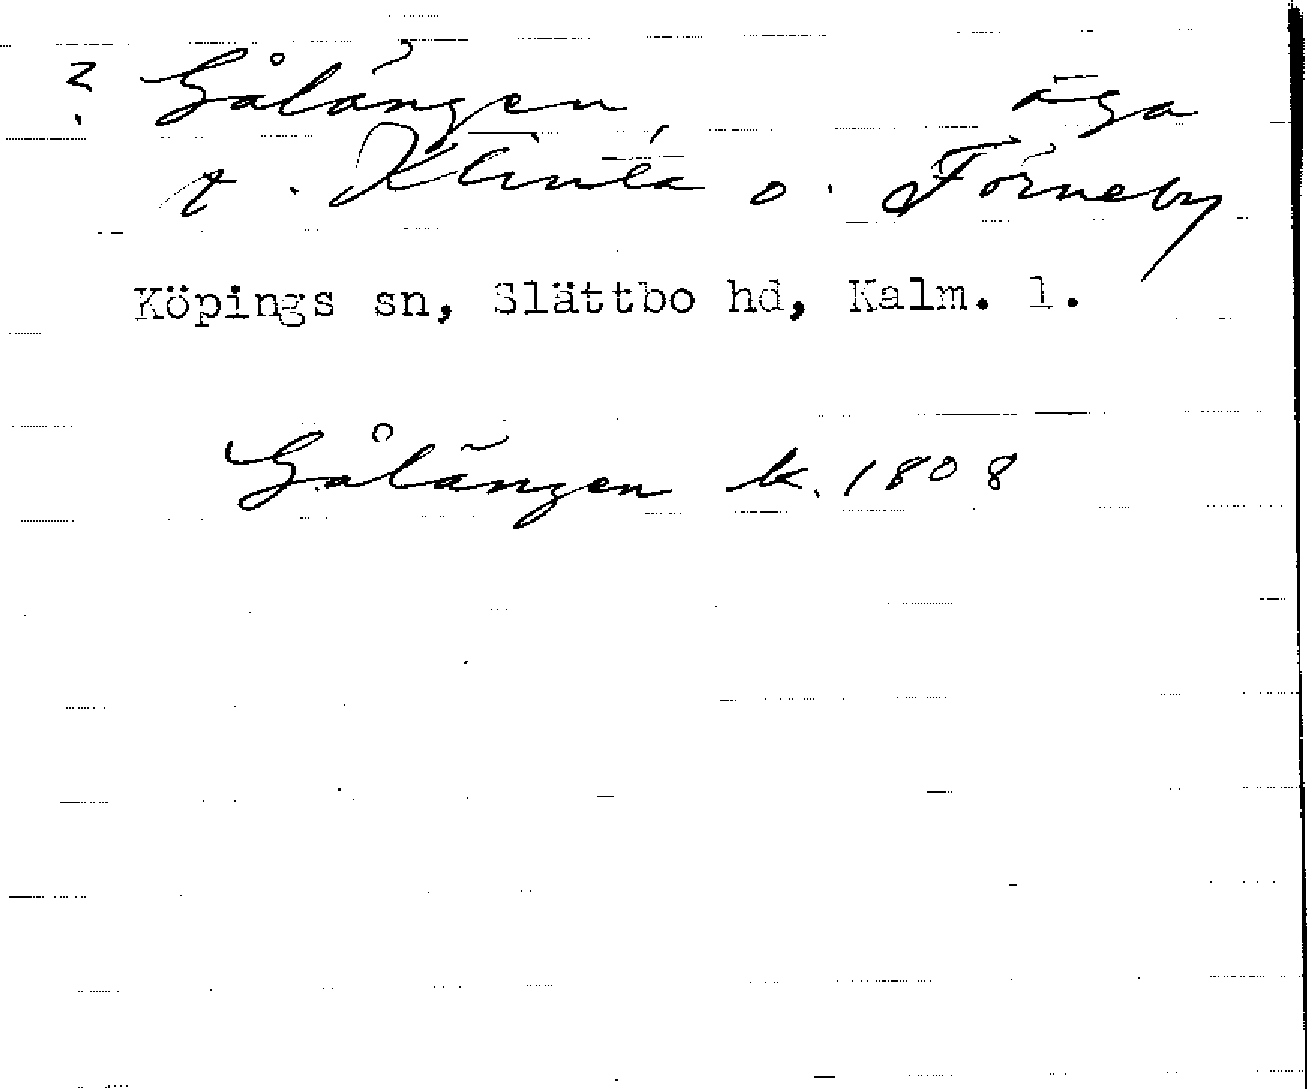 ? Gålängen äga
t. Klinta o. Törneby
Köpings sn, Slättbo hd, Kalm. l.
Gålängen k. 1808